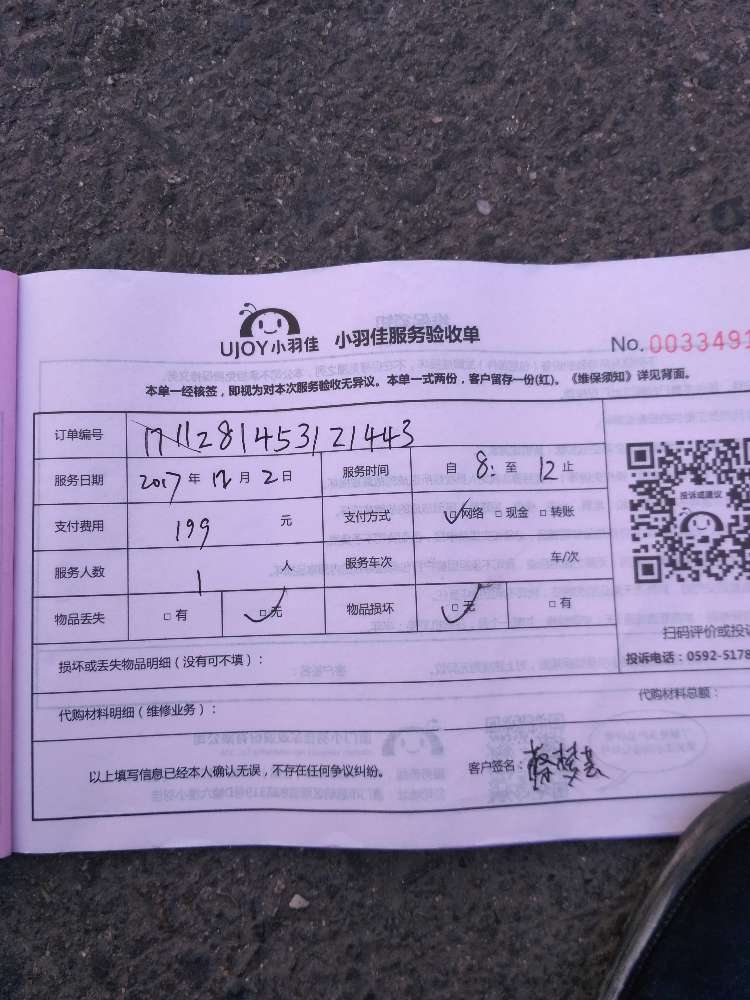 UJOY小羽佳 小羽佳服务验收单
No. 0033491
本单一经核签，即视为对本次服务验收无异议。本单一式两份，客户留存一份(红)。《维保须知》详见背面。
订单编号 171128145312​1443
服务日期 2017 年 12 月 2 日 服务时间 自 8: 至 12 止
投诉或建议
支付费用 199 元 支付方式 ☑网络 □现金 □转账
服务人数 1 人 服务车次 车/次
物品丢失 □有 ☑无 物品损坏 ☑无 □有
扫码评价或投诉
损坏或丢失物品明细（没有可不填）：
投诉电话：0592-5178
代购材料明细（维修业务）： 代购材料总额：
以上填写信息已经本人确认无误，不存在任何争议纠纷。 客户签名：